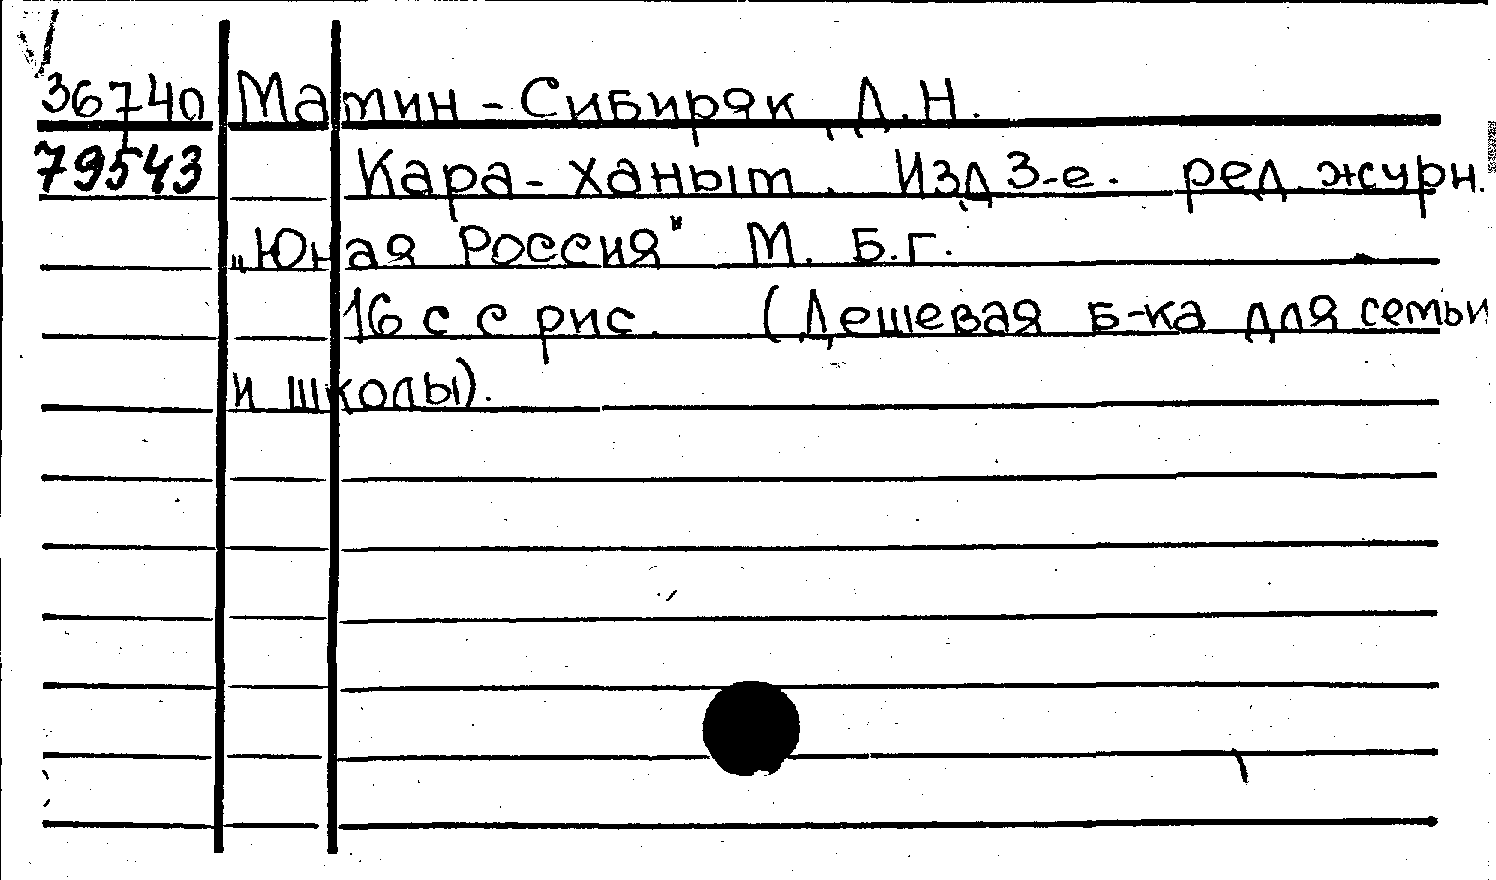 36740 Мамин-Сибиряк, Д.Н.
79543 Кара-Ханым. Изд. 3-е. ред. журн.
„Юная Россия" М. Б.г.
16 с с рис. (Дешевая б-ка для семьи
и школы).